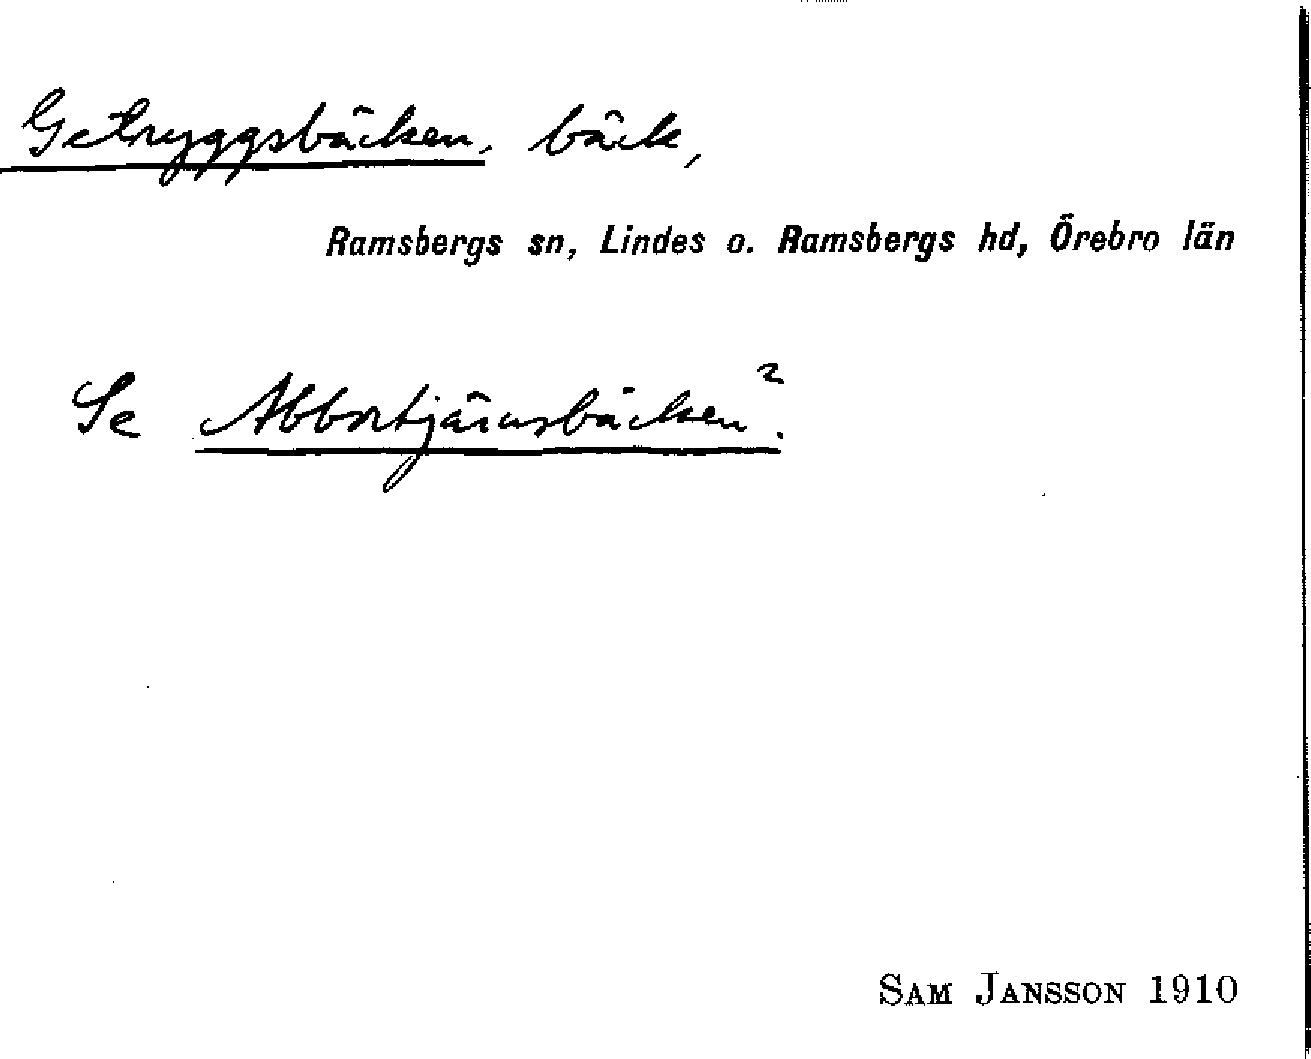 Getryggsbäcken, bäck,
Ramsbergs sn, Lindes o. Ramsbergs hd, Örebro län
Se Abbortjärnsbäcken².
SAM JANSSON 1910